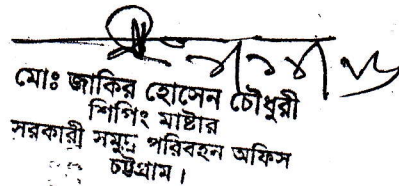 মোঃ জাকির হোসেন চৌধুরী
শিপিং মাষ্টার
সরকারী সমুদ্র পরিবহন অফিস
চট্টগ্রাম।